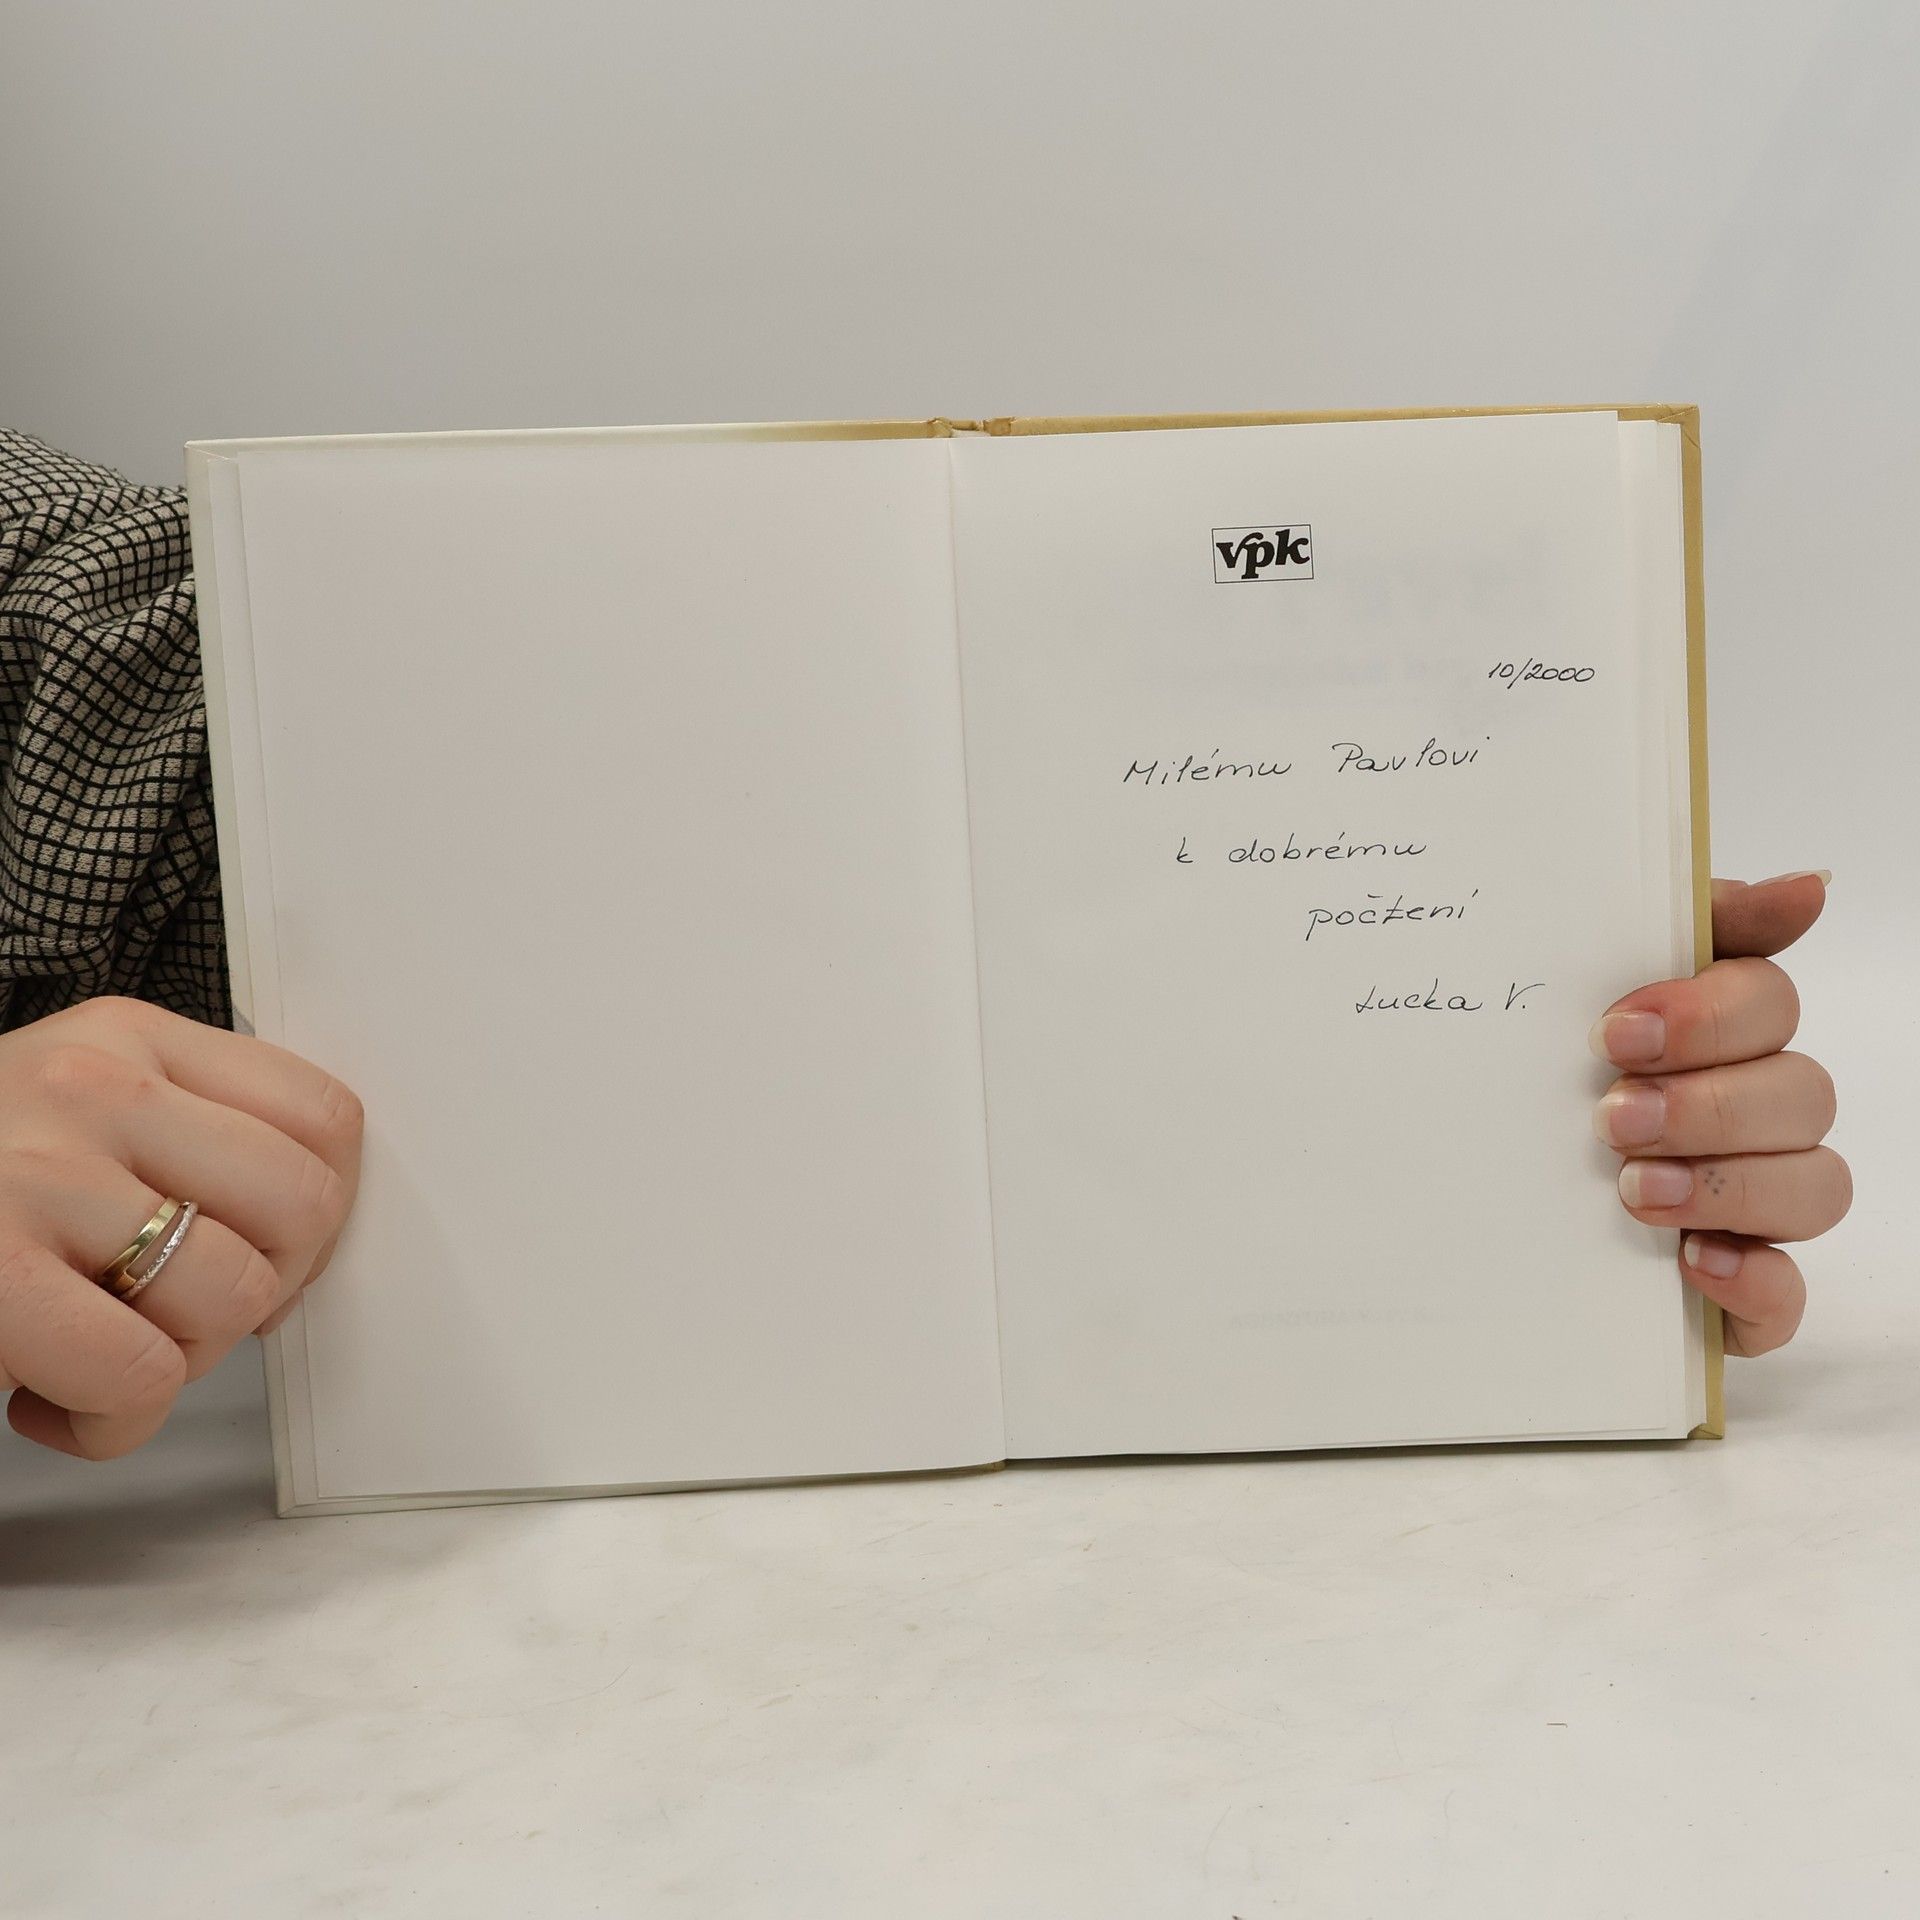 vpk
10/2000
Milému Pavlovi
k dobrému
počtení
Lucka V.